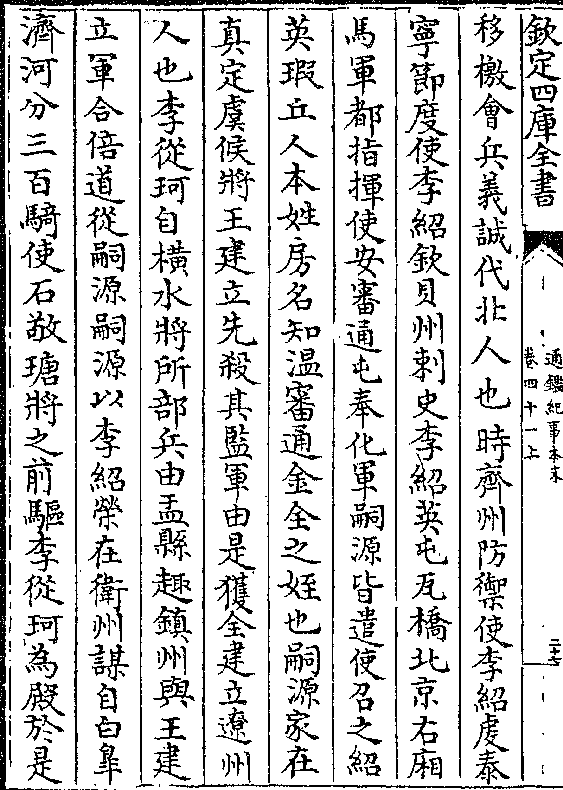 欽定四庫全書
通鑑紀事本末
卷四十一上
二十七
移檄會兵義誠代北人也時齊州防禦使李紹䖍泰
寧節度使李紹欽貝州刺史李紹英屯瓦橋北京右廂
馬軍都指揮使安審通屯奉化軍嗣源皆遣使召之紹
英瑕丘人本姓房名知温審通金全之姪也嗣源家在
真定虞候將王建立先殺其監軍由是獲全建立遼州
人也李從珂自横水將所部兵由盂縣趣鎮州與王建
立軍合倍道從嗣源嗣源以李紹榮在衛州謀自白皐
濟河分三百騎使石敬瑭將之前驅李從珂為殿於是